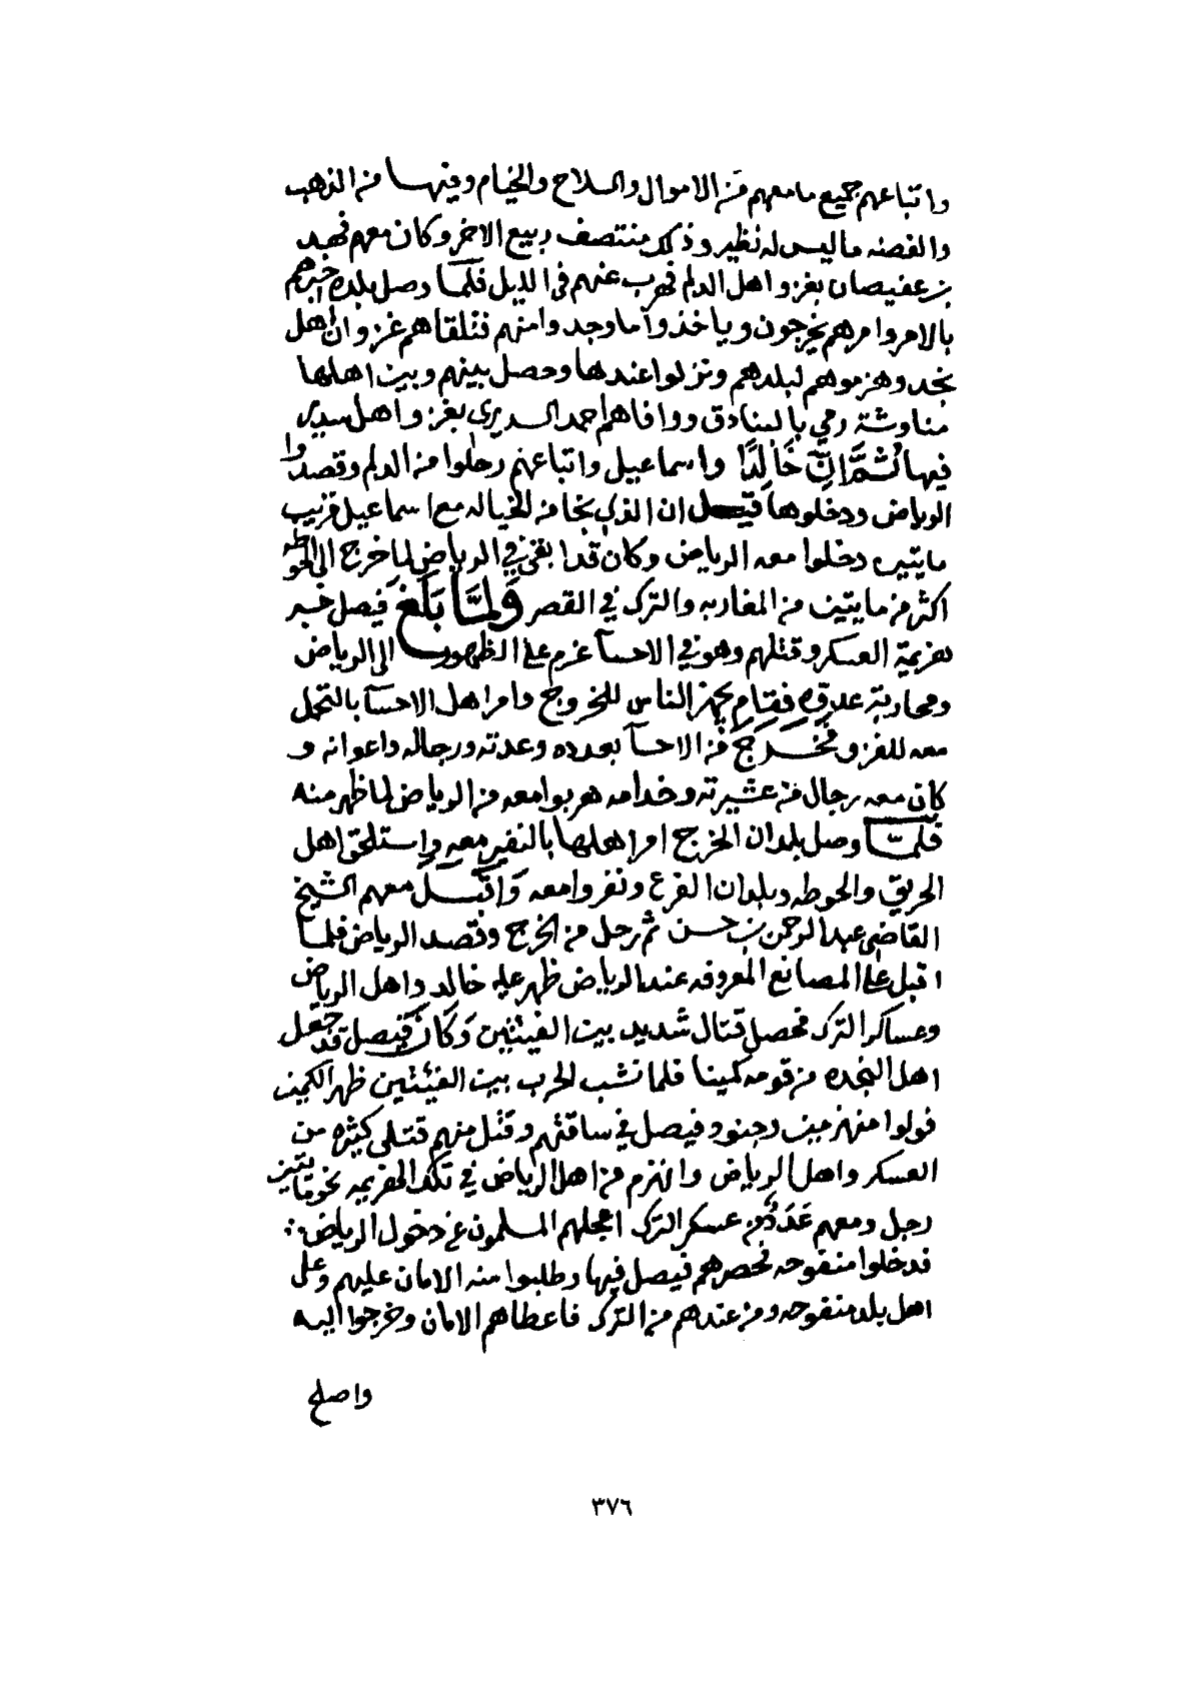 واتباعهم جميع مامعهم من الاموال والسلاح والخيام وفيها من الذهب
والفضه ماليس له نظير وذلك منتصف ربيع الاخر وكان معهم فهد
بن عفيصان بغزو اهل الدلم فهرب عنهم في الليل فلما وصل بلده اخبرهم
بالامر وامرهم يخرجون وياخذوا ماوجدوا منهم فتلقاهم غزوان اهل
نجد وهزموهم لبلدهم ونزلوا عندها وحصل بينهم وبين اهلها
مناوشة رمي بالبنادق ووافاهم احمد السديري بغزو اهل سدير
فيها ثم ان خالدا واسماعيل واتباعهم رحلوا من الدلم وقصدوا
الرياض ودخلوها قيل ان الذي نجا من الخياله مع اسماعيل قريب
مايتين دخلوا معه الرياض وكان قد ابقى في الرياض لما خرج الى الحوطه
اكثر من مايتين من المغاربه والترك في القصر ولما بلغ فيصل خبر
هزيمة العسكر وقتلهم وهو في الاحسآ عزم على الظهور الى الرياض
ومحاربة عدوه فقام يجهز الناس للخروج وامر اهل الاحسآ بالتحمل
معه للغزو فخرج من الاحسآ بعدده وعدته ورجاله واعوانه و
كان معه رجال من عشيرته وخدامه هربوا معه من الرياض لما ظهر منه
فلما وصل بلدان الخرج امر اهلها بالنفير معه واستلحق اهل
الحريق والحوطه وبلدان الفرع ونفروا معه واقبل معهم الشيخ
القاضي عبدالرحمن بن حسن ثم رحل من الخرج وقصد الرياض فلما
اقبل على المصانع المعروفه عند الرياض ظهر عليه خالد واهل الرياض
وعساكر الترك فحصل قتال شديد بين الفئتين وكان فيصل قد جعل
اهل النجده من قومه كمينا فلما نشب الحرب بين الفئتين ظهر الكمين
فولوا منهزمين وجنود فيصل في ساقتهم وقتل منهم قتلى كثيره من
العسكر واهل الرياض وانهزم من اهل الرياض في تلك الهزيمه نحو مايتين
رجل ومعهم عدد من عسكر الترك اعجلهم المسلمون عن دخول الرياض
فدخلوا منفوحه فحصرهم فيصل فيها وطلبوا منه الامان عليهم وعلى
اهل بلد منفوحه ومن عندهم من الترك فاعطاهم الامان وخرجوا اليه
واصلح
٣٧٦